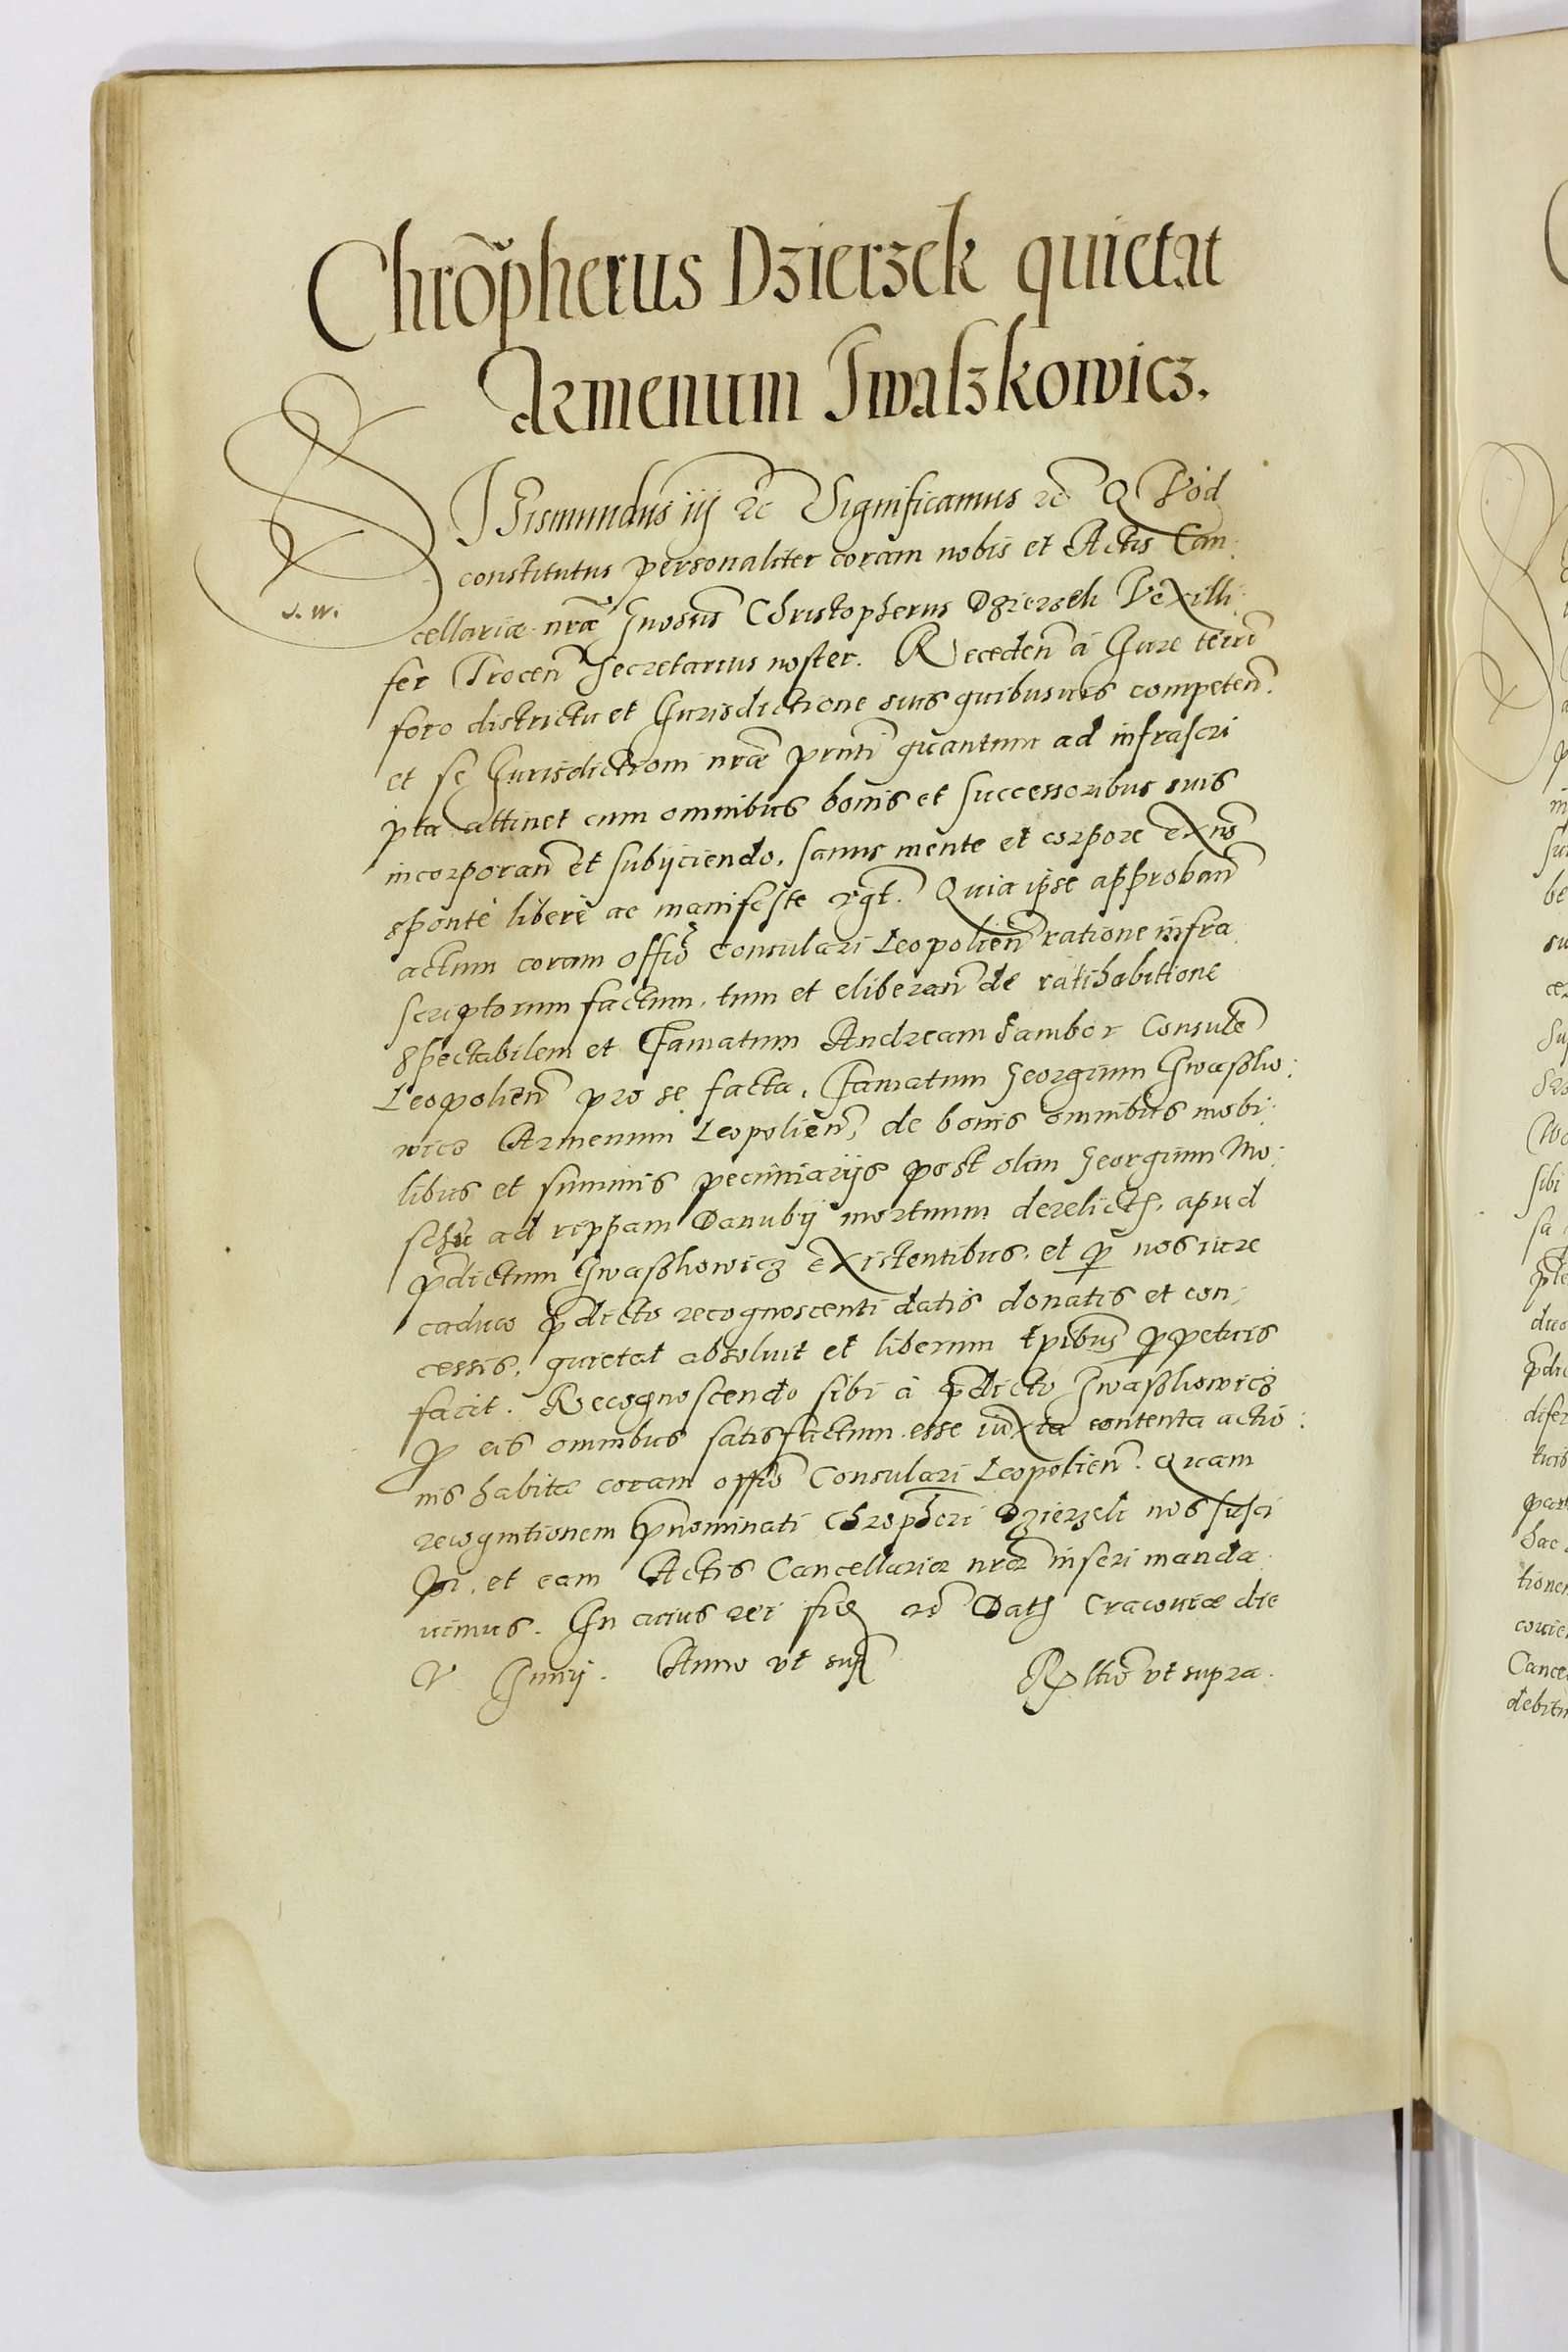 Chrõpherus Dzierzek quietat
Armenum Iwaszkowicz.
SIgismundus iij &c Significamus &c Quod
constitutus personaliter coram nobis et Actis Can:
cellariæ nr̃æ Gnosus Christopherus Dzierzek Vexilli:
J. W.
fer Trocen̄ Secretarius noster. Receden̄ à Iure terrē
foro districtu et Iurisdictione suis quibusuis competen̄.
et se Iurisdictioni nr̃æ pn̄ti quantum ad infrascri
pta attinet cum omnibus bonis et successoribus suis
incorporan̄ et subijciendo, sanus mente et corpore exn̄s
sponte liberè ac manifeste rgt̄. Quia ipse approban̄
actum coram offīo Consulari Leopolien̄ ratione infra
scriptorum factum, tum et eliberan̄ de ratihabitione
spectabilem et famatum Andream Sambor Consulē
Leopolien̄ pro se facta, famatum Georgium Iwaszko:
wicz Armenum Leopolien̄, de bonis omnibus mobi:
libus et summis pecuniarijs post olim Georgium Mo:
ad reppam Danubij mortuum derelictꝭ, apud
p̄dictum Iwaszkowicz existentibus, et ꝑ nos iure
caduco p̄dicto recognoscenti datis donatis et con:
cessis, quietat absoluit et liberum tp̄ibus ꝑpetuis
facit. Recognoscendo sibi à p̄dicto Iwaszkowicz
ꝓ eis omnibus satisfactum esse iuxta contenta actio:
nis habitæ coram offīo Consulari Leopolien̄. Quam
recognitionem p̄nominati Chrōpheri Dzierzek nos susci
pi, et eam Actis Cancellariæ nr̃æ inseri manda
uimus. In cuius rei fidē &c Datꝭ Cracouiæ die
V Iunij. Anno vt supꝛ̄ Rełtio vt supra.